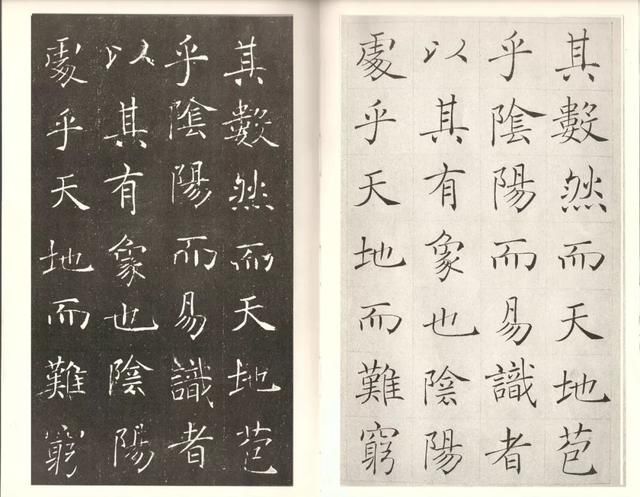 其數然而天地苞
乎陰陽而易識者
以其有象也陰陽
處乎天地而難窮
其數然而天地苞
乎陰陽而易識者
以其有象也陰陽
處乎天地而難窮